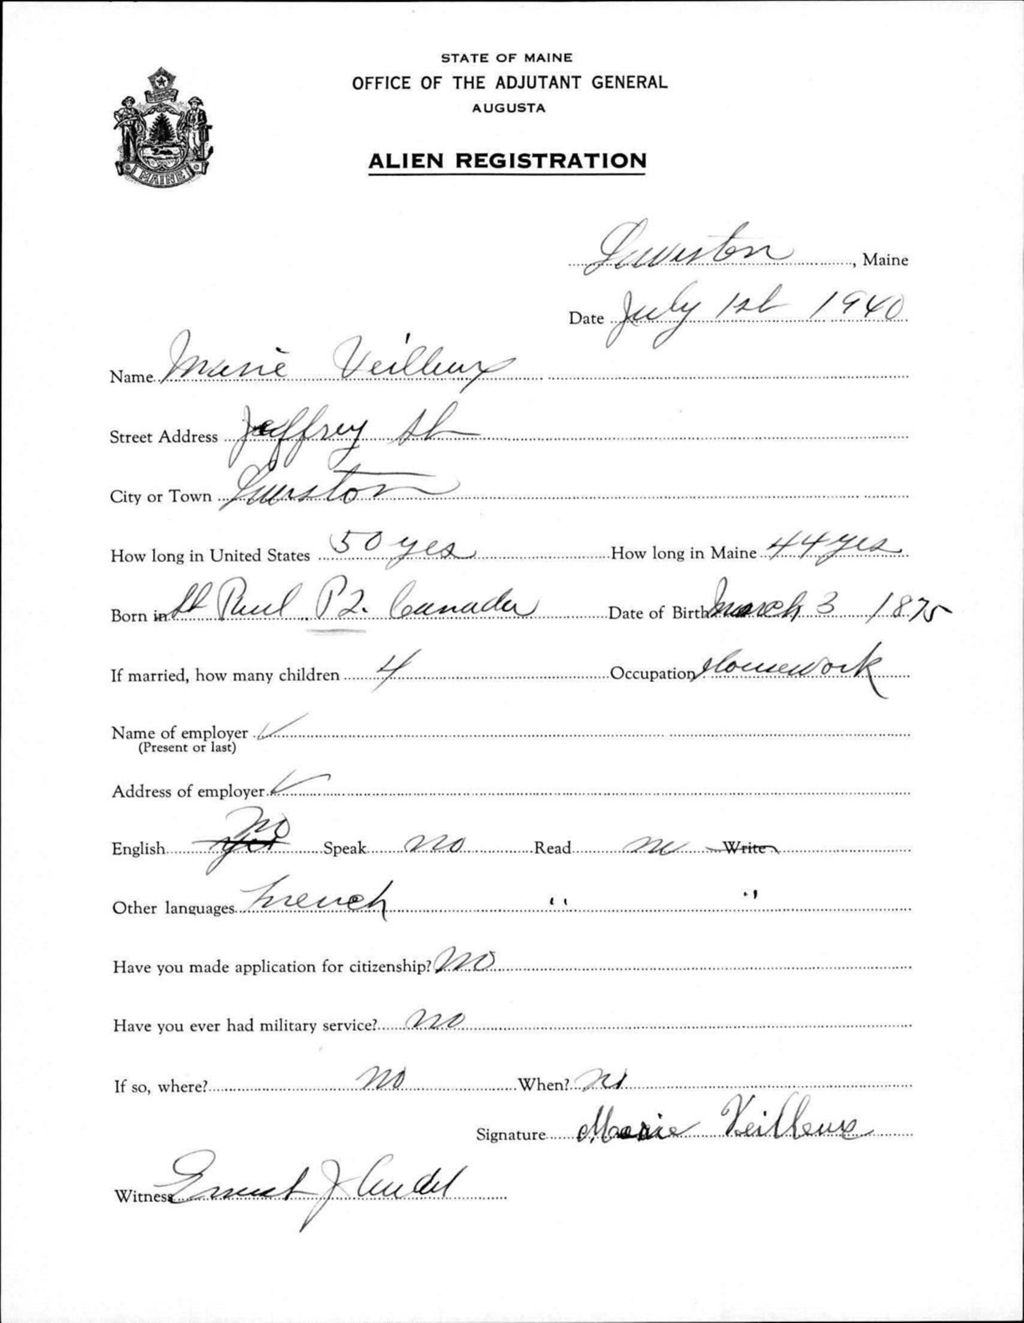 STATE OF MAINE
OFFICE OF THE ADJUTANT GENERAL
AUGUSTA
MAINE
ALIEN REGISTRATION
Lewiston, Maine
Date July 1st 1940
Name Marie Veilleux
Street Address Jeffrey St
City or Town Lewiston
How long in United States 50 yes How long in Maine 44 yes
Born in St Paul P2. Canada Date of Birth March 3 1875
If married, how many children 4 Occupation Housework
Name of employer ✓
(Present or last)
Address of employer ✓
No
English yes Speak no Read no Write
Other languages French " "
Have you made application for citizenship? No
Have you ever had military service? no
If so, where? no When? no
Signature Marie Veilleux
Witness Ernest J